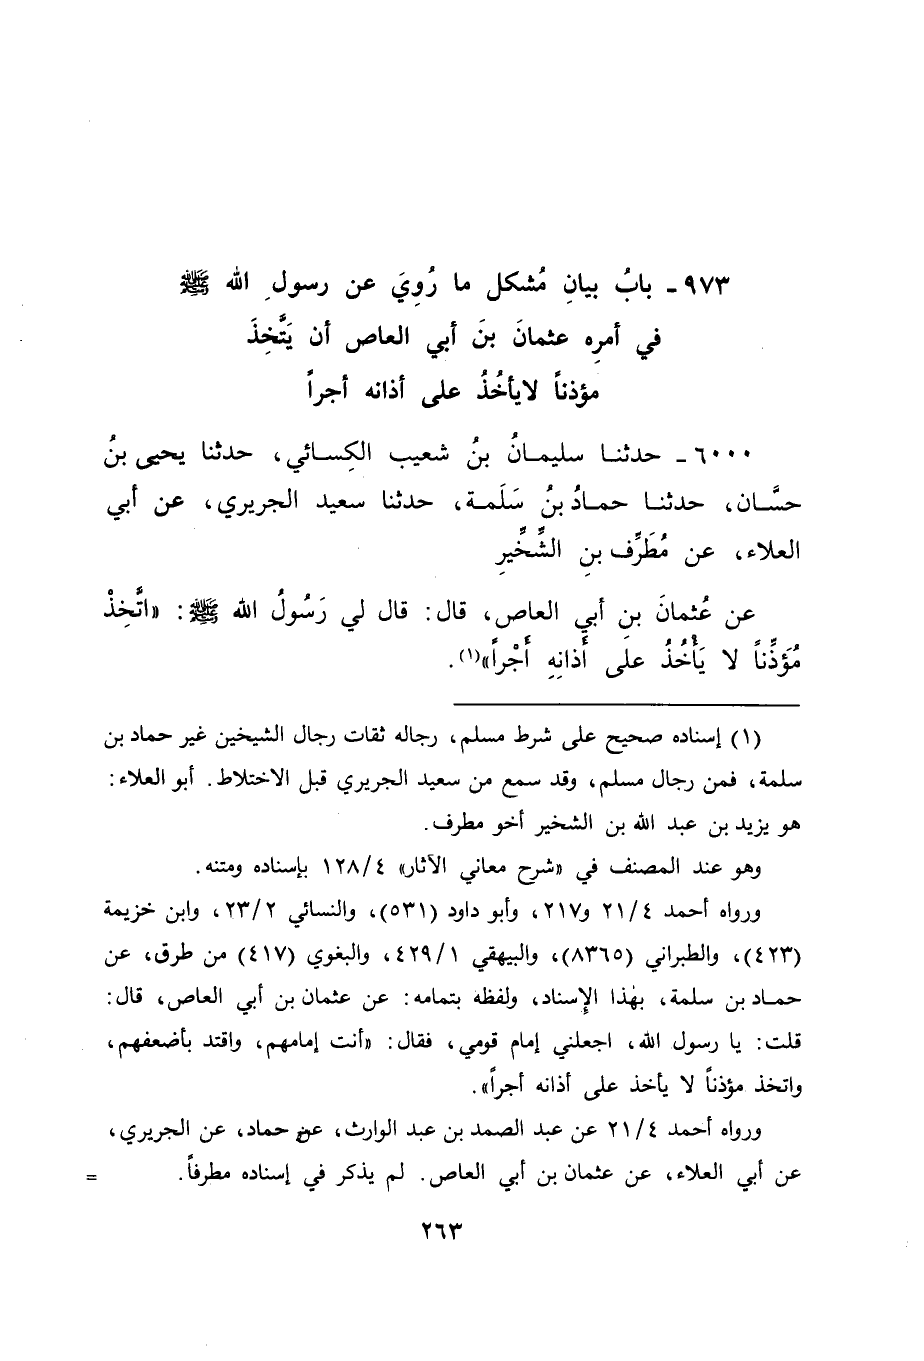 ٩٧٣ ـ بابُ بيانِ مُشكل ما رُوِيَ عن رسولِ الله ﷺ
في أمرِه عثمانَ بنَ أبي العاص أن يَتَّخِذَ
مؤذناً لايأخُذُ على أذانه أجراً
٦٠٠٠ ـ حدثنـا سليمـانُ بنُ شعيب الكِسـائي، حدثنا يحيى بنُ
حسَّـان، حدثنـا حمـادُ بنُ سَلَمـة، حدثنا سعيد الجريري، عن أبي
العلاء، عن مُطَرِّف بنِ الشِّخِّيرِ
عن عُثمانَ بنِ أبي العاص، قال: قال لي رَسُولُ الله ﷺ: «اتَّخِذْ
مُؤَذِّناً لا يَأْخُذُ على أَذانِهِ أَجْراً»(١).
(١) إسناده صحيح على شرط مسلم، رجاله ثقات رجال الشيخين غير حماد بن
سلمة، فمن رجال مسلم، وقد سمع من سعيد الجريري قبل الاختلاط. أبو العلاء:
هو يزيد بن عبد الله بن الشخير أخو مطرف.
وهو عند المصنف في «شرح معاني الآثار» ١٢٨/٤ بإسناده ومتنه.
ورواه أحمد ٢١/٤ و٢١٧، وأبو داود (٥٣١)، والنسائي ٢٣/٢، وابن خزيمة
(٤٢٣)، والطبراني (٨٣٦٥)، والبيهقي ٤٢٩/١، والبغوي (٤١٧) من طرق، عن
حمـاد بن سلمة، بهٰذا الإِسناد، ولفظه بتمامه: عن عثمان بن أبي العاص، قال:
قلت: يا رسول الله، اجعلني إمام قومي، فقال: «أنت إمامهم، واقتد بأضعفهم،
واتخذ مؤذناً لا يأخذ على أذانه أجراً».
ورواه أحمد ٢١/٤ عن عبد الصمد بن عبد الوارث، عن حماد، عن الجريري،
عن أبي العلاء، عن عثمان بن أبي العاص. لم يذكر في إسناده مطرفاً. =
٢٦٣